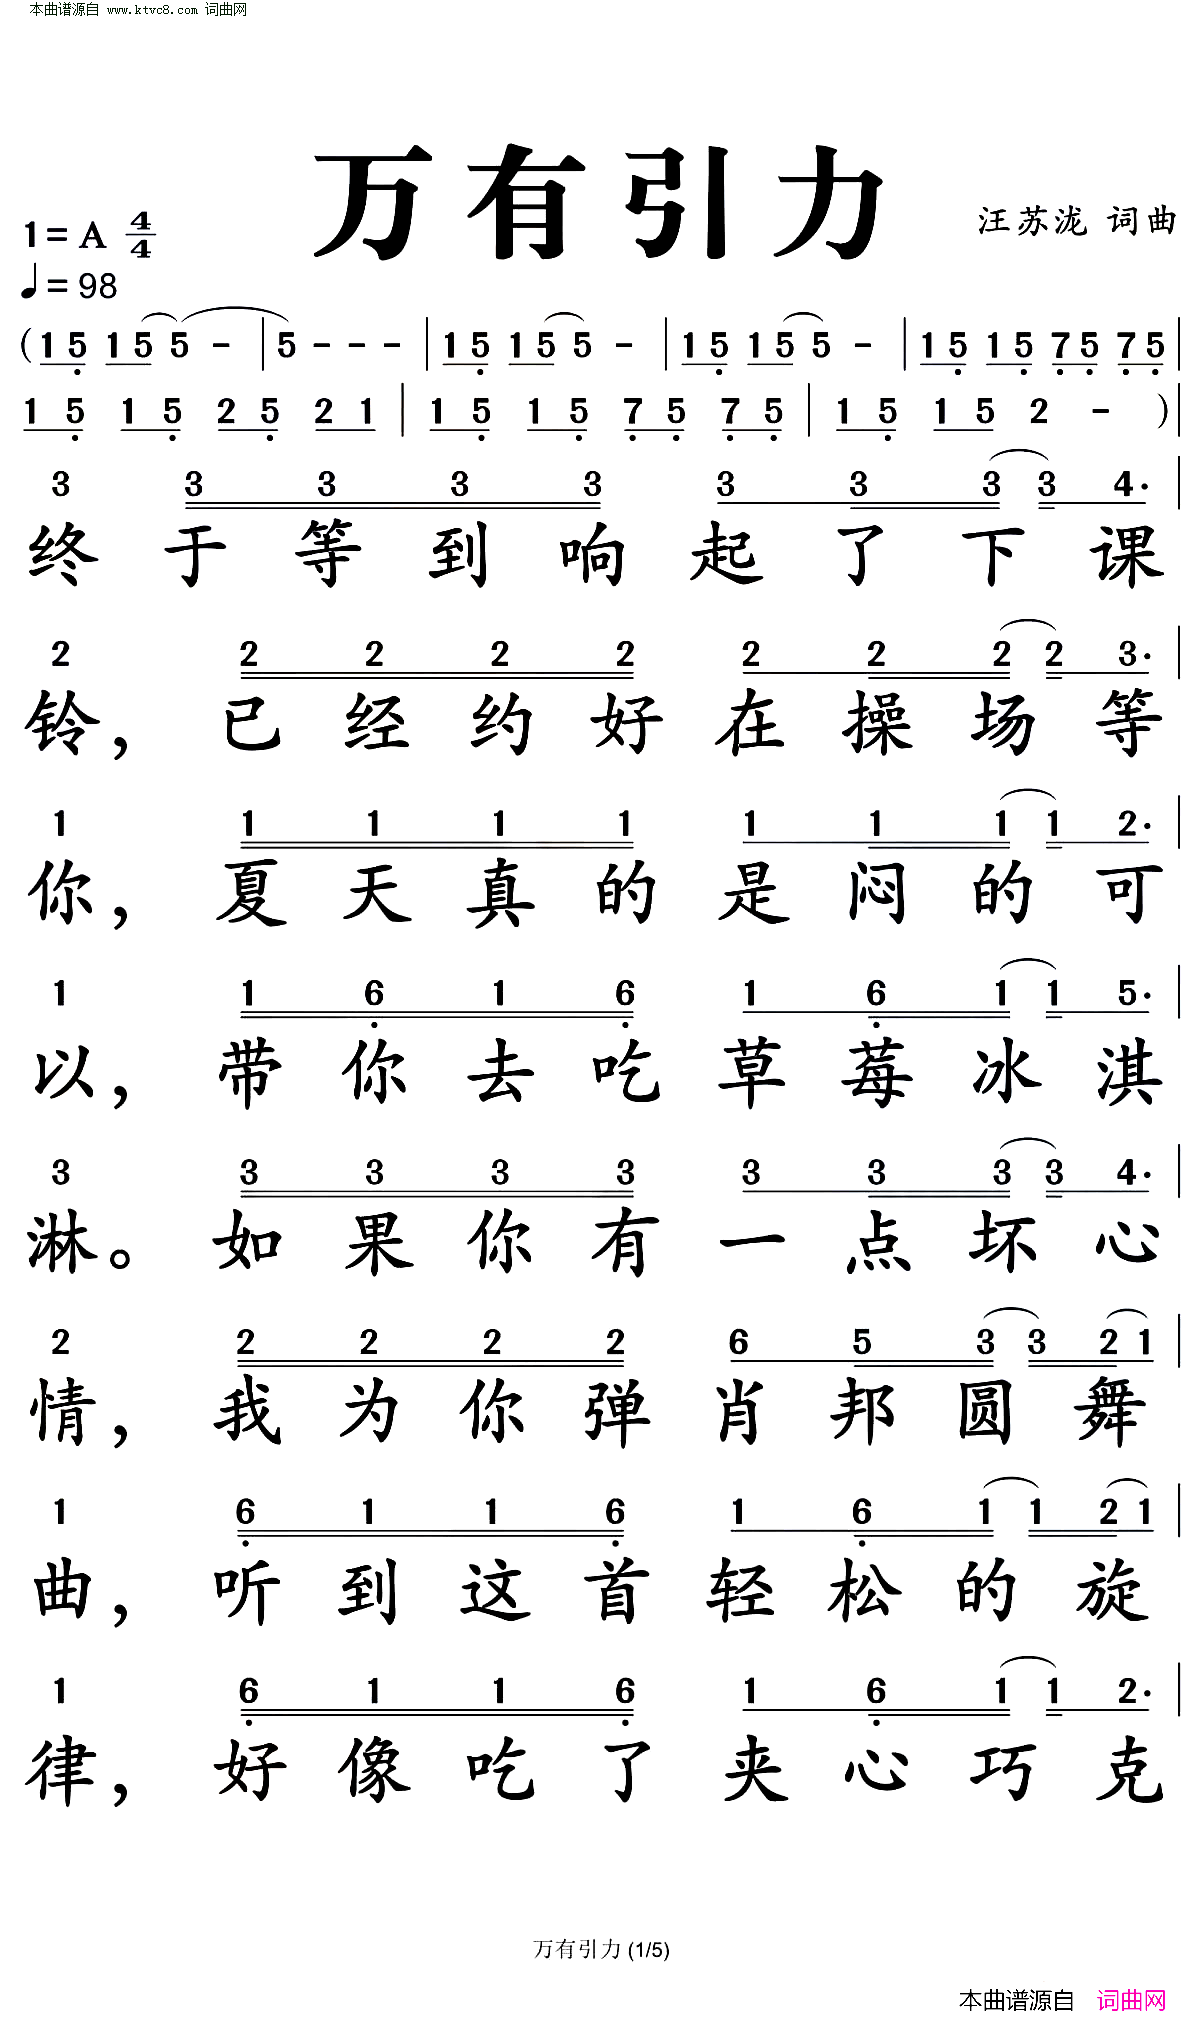 本曲谱源自 www.ktvc8.com 词曲网
万有引力
1=A 4/4
汪苏泷 词曲
♩=98
(1 5 1 5 5 - | 5 - - - | 1 5 1 5 5 - | 1 5 1 5 5 - | 1 5 1 5 7 5 7 5 |
1 5 1 5 2 5 2 1 | 1 5 1 5 7 5 7 5 | 1 5 1 5 2 - ) |
3 3 3 3 3 3 3 3 3 4· |
终于等到响起了下课
2 2 2 2 2 2 2 2 2 3· |
铃，已经约好在操场等
1 1 1 1 1 1 1 1 1 2· |
你，夏天真的是闷的可
1 1 6 1 6 1 6 1 1 5· |
以，带你去吃草莓冰淇
3 3 3 3 3 3 3 3 3 4· |
淋。如果你有一点坏心
2 2 2 2 2 6 5 3 3 2 1 |
情，我为你弹肖邦圆舞
1 6 1 1 6 1 6 1 1 2 1 |
曲，听到这首轻松的旋
1 6 1 1 6 1 6 1 1 2· |
律，好像吃了夹心巧克
万有引力 (1/5)
本曲谱源自 词曲网